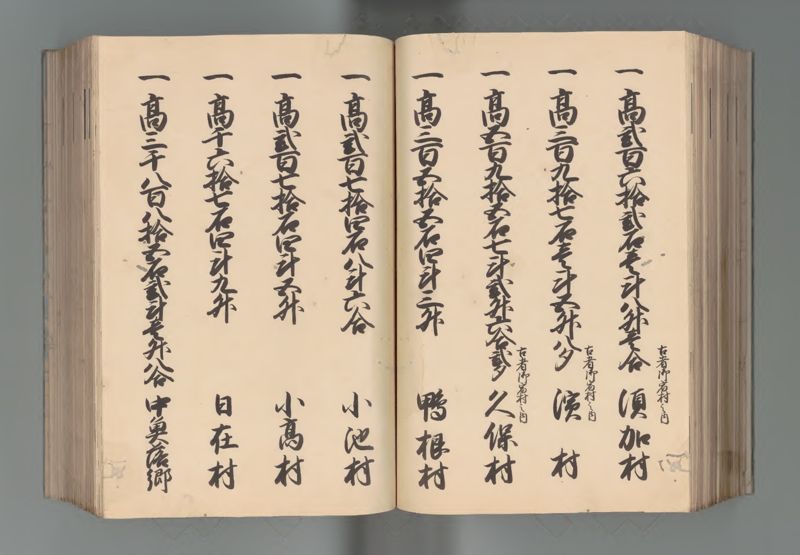 一高弐百六拾弐石壱斗八升壱合
古者御宿村之内
須加村
一高三百九拾七石壱斗五升八夕
古者御宿村之内
濱村
一高五百九拾五石七斗弐升六合弐夕
古者御宿村之内
久保村
一高三百五拾五石四斗三升
鴨根村
一高弐百七拾四石八斗六合
小池村
一高弐百七拾石四斗五升
小高村
一高千六拾七石四斗九升
日在村
一高三千八百八拾五石弐斗壱升八合
中魚落郷